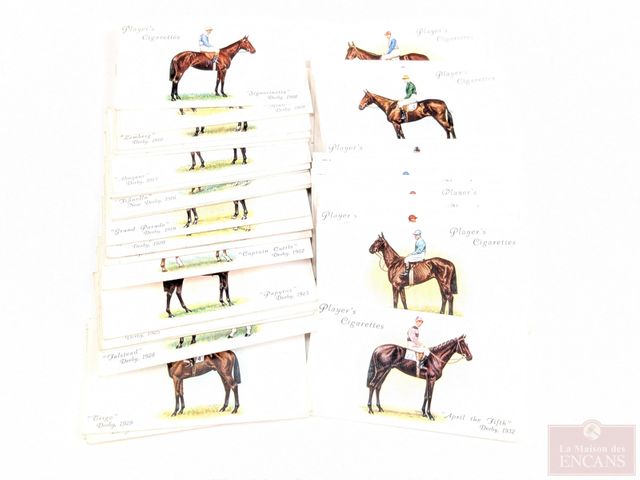 Player's
Cigarettes
"Signorinetta"
Derby, 1908
1909
"Lemberg"
Derby, 1910
Derby, 1917
"Fifinella"
New Derby, 1916
"Grand Parade"
Derby, 1919
"Captain Cuttle"
Derby, 1922
"Papyrus"
Derby, 1923
Derby, 1925
"Felstead"
Derby, 1928
"Trigo"
Derby, 1929
Player's
Cigarettes
Player's
Cigarettes
Player's
Player's
Player's
Player's
Cigarettes
Player's
Cigarettes
"April the Fifth"
Derby, 1932
La Maison des
ENCANS